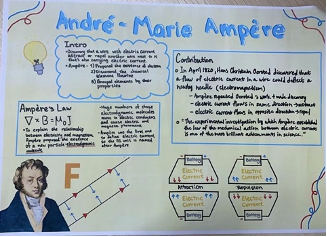 André - Marie Ampère
Intro
- Discovered that a wire with electric current
attract or repel another wire next to it
that's also carrying electric current
- Ampère - 1) Proposed the existence of electron
2) Discovered the chemical
element fluorine
3) Grouped elements by their
properties
Contribution
In April 1820, Hans Christian Oersted discovered that
a flow of electric current in a wire could deflect a
nearby needle (electromagnetism)
- Ampère repeated Oersted's work
- electric current flows in same direction
- electric current flows in opposite direction
"The experimental investigation by which Ampère established
the law of the mechanical action between electric currents
is one of the most brilliant achievements in science."
Ampère's Law
∇ × B = μ₀J
- To explain the relationship
between electricity and magnetism,
Ampère proposed the existence
of a new particle
- Huge numbers of these
electrodynamic
in electric conductors
and cause electric and
magnetic phenomena
- Ampère was the first one
to
The SI unit is named
after Ampère
F
Battery
Battery
Electric
Current
Electric
Current
Battery
Battery
Attraction
Repulsion
Battery
Battery
Electric
Current
Electric
Current
Battery
Battery